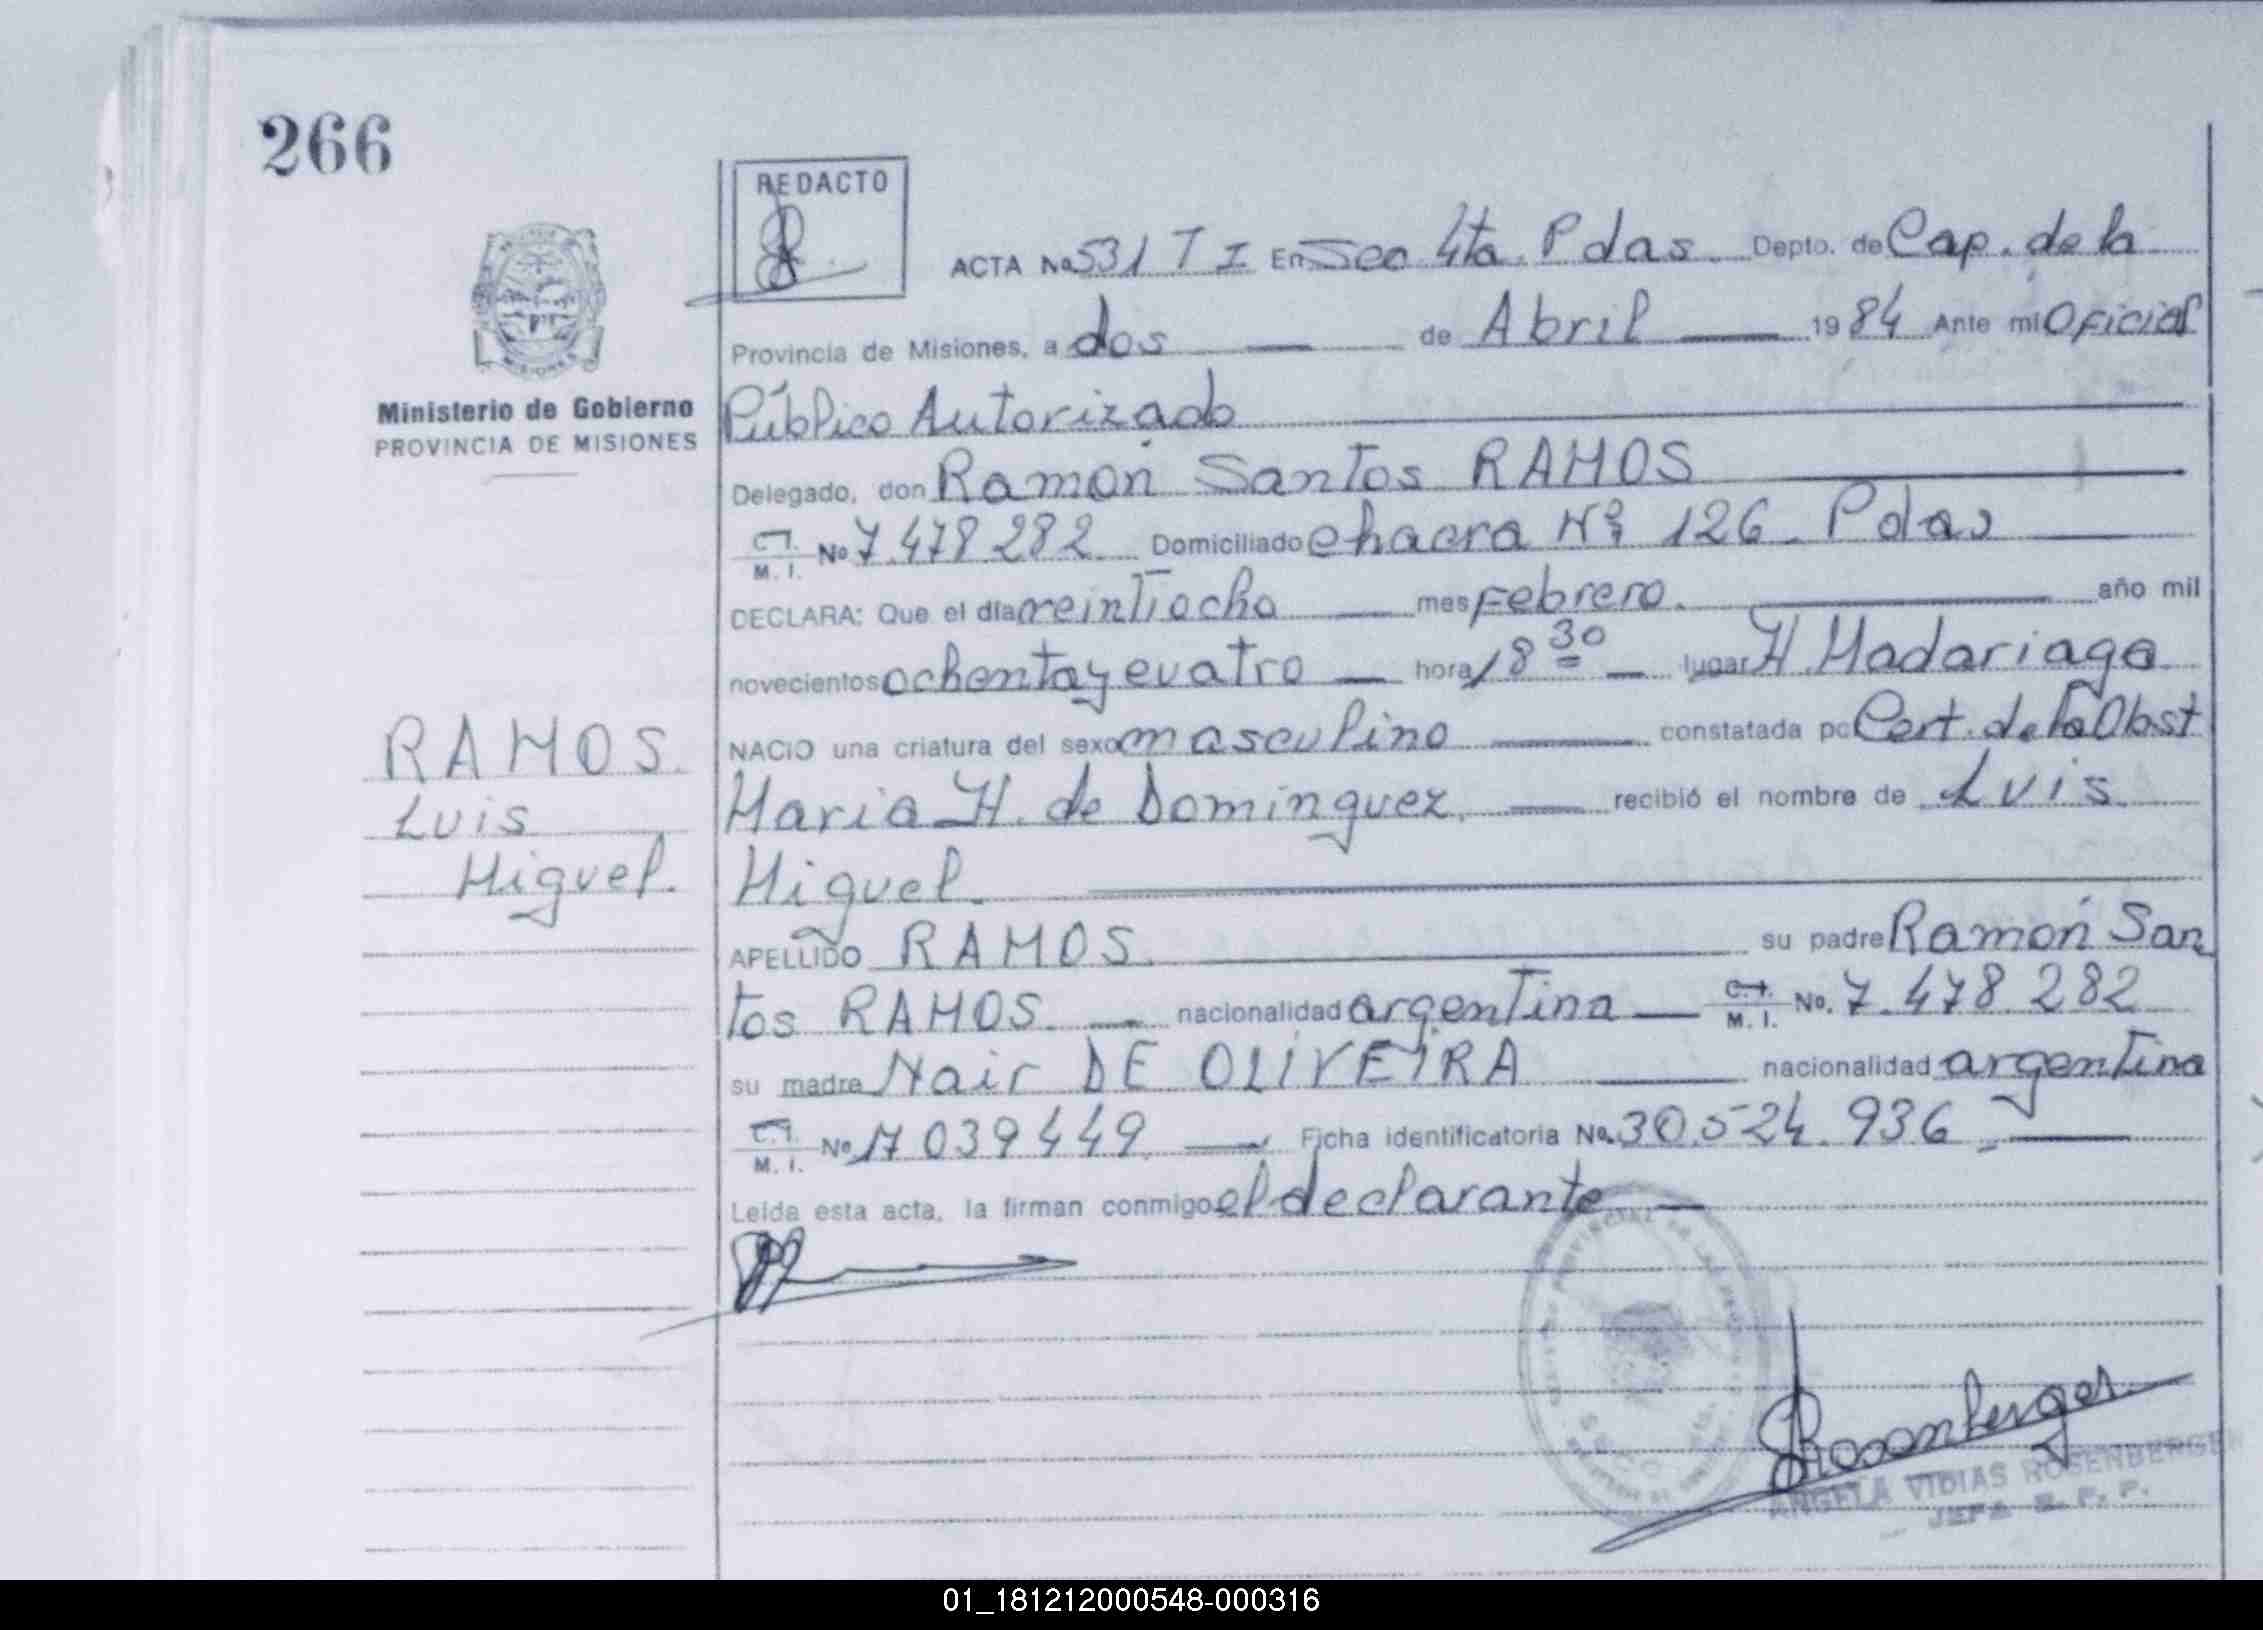 266
REDACTO
ACTA No 531 T I En Sec 4ta. Pdas. Depto. de Cap. de la
Provincia de Misiones, a dos de Abril 19 84 Ante mi Oficial
Público Autorizado
Ministerio de Gobierno
PROVINCIA DE MISIONES
Delegado, don Ramón Santos RAMOS
C.I. M. I. No 7.478.282 Domiciliado chacra Nº 126. Pdas
DECLARA: Que el día veintiocho mes Febrero. año mil
novecientos ochenta y cuatro hora 18 30 lugar H. Madariaga
NACIO una criatura del sexo masculino constatada po Cert. de la Obst
Maria H. de Dominguez. recibió el nombre de Luis
Miguel.
RAMOS.
Luis
Miguel.
APELLIDO RAMOS. su padre Ramón San
tos RAMOS. nacionalidad argentina C.I. M. I. No. 7.478.282
su madre Nair DE OLIVEIRA nacionalidad argentina
C.I. M. I. No 17 039 449. Ficha identificatoria No. 30.524.936.
Leída esta acta, la firman conmigo el declarante
Rosenberger
ANGELA VIDIAS ROSENBERGER
JEFA R. P. P.
01_181212000548-000316